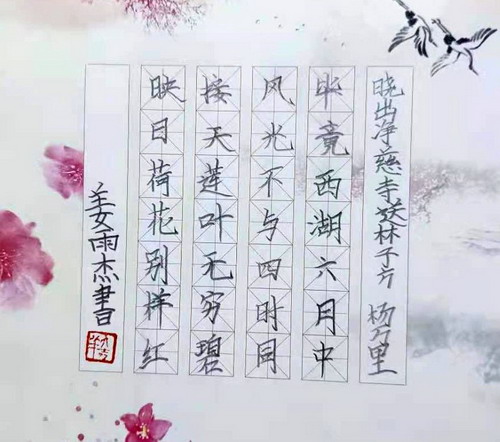 晓出净慈寺送林子方 杨万里
毕竟西湖六月中
风光不与四时同
接天莲叶无穷碧
映日荷花别样红
姜雨杰書